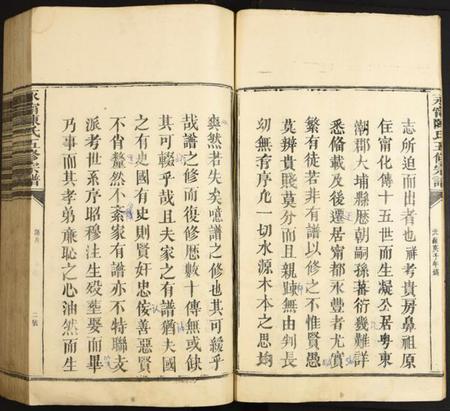 永甯陳氏五修宗譜
志所迫而出者也祥考貴房鼻祖原
住甯化傳十五世而生凝公居粵東
潮郡大埔縣歷朝嗣孫蕃衍幾難詳
悉備載及後遷居甯都永豐者尤實
繁有徒若非有譜以修之不惟賢愚
莫辨貴賤莫分而且親疎無由判長
幼無有序允一切水源木本之思均
爽然若失矣噫譜之修也其可緩乎
哉譜之修而復修歷數十傳無或缺
其可輟乎哉且夫家之有譜猶夫國
之有史國有史則賢奸忠佞善惡賢
不肖釐然不紊家有譜亦不特聯支
派考世系序昭穆注生歿塟娶而畢
乃事而其孝弟廉恥之心油然而生
永甯陳氏五修宗譜
二